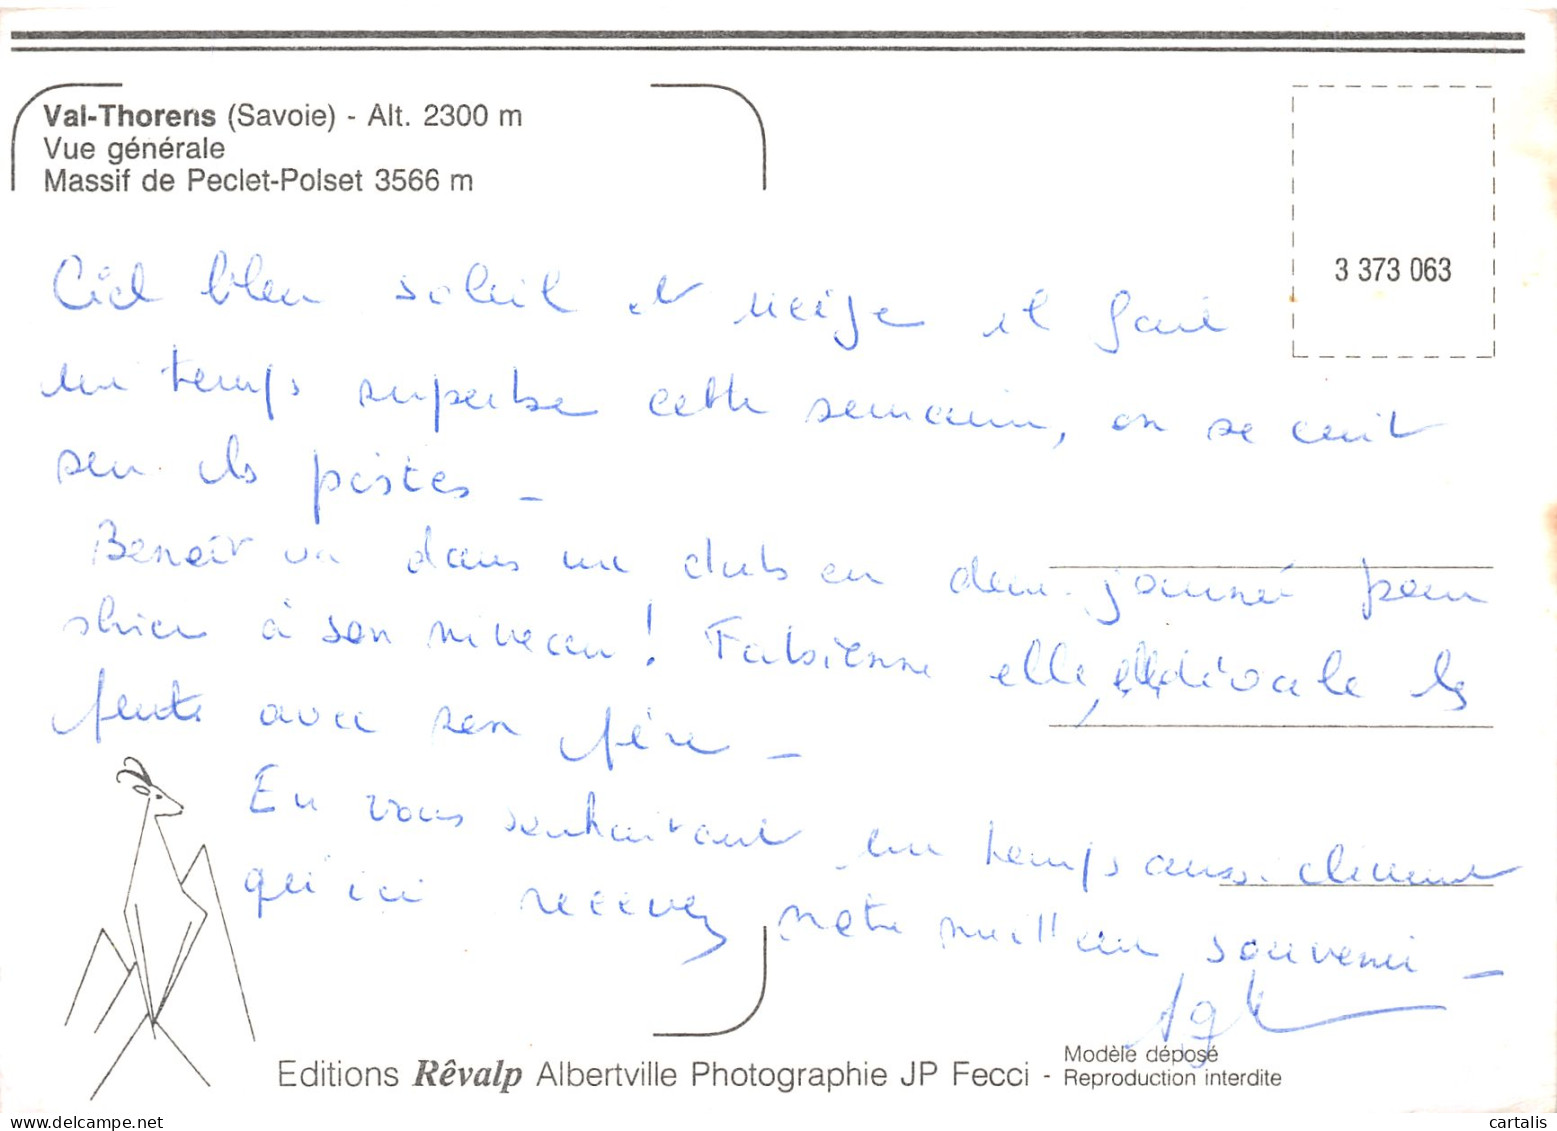 Val-Thorens (Savoie) - Alt. 2300 m
Vue générale
Massif de Peclet-Polset 3566 m
3 373 063
Ciel bleu soleil et neige il fait
un temps superbe cette semaine, on se cuit
sur les pistes -
Benoît va dans un club en demi-journée pour
skier à son niveau ! Fabienne elle, dévale les
pentes avec son père -
En vous souhaitant un temps aussi clément
qu'ici recevez notre meilleur souvenir -
Editions Rêvalp Albertville Photographie JP Fecci - Modèle déposé
Reproduction interdite
cartalis